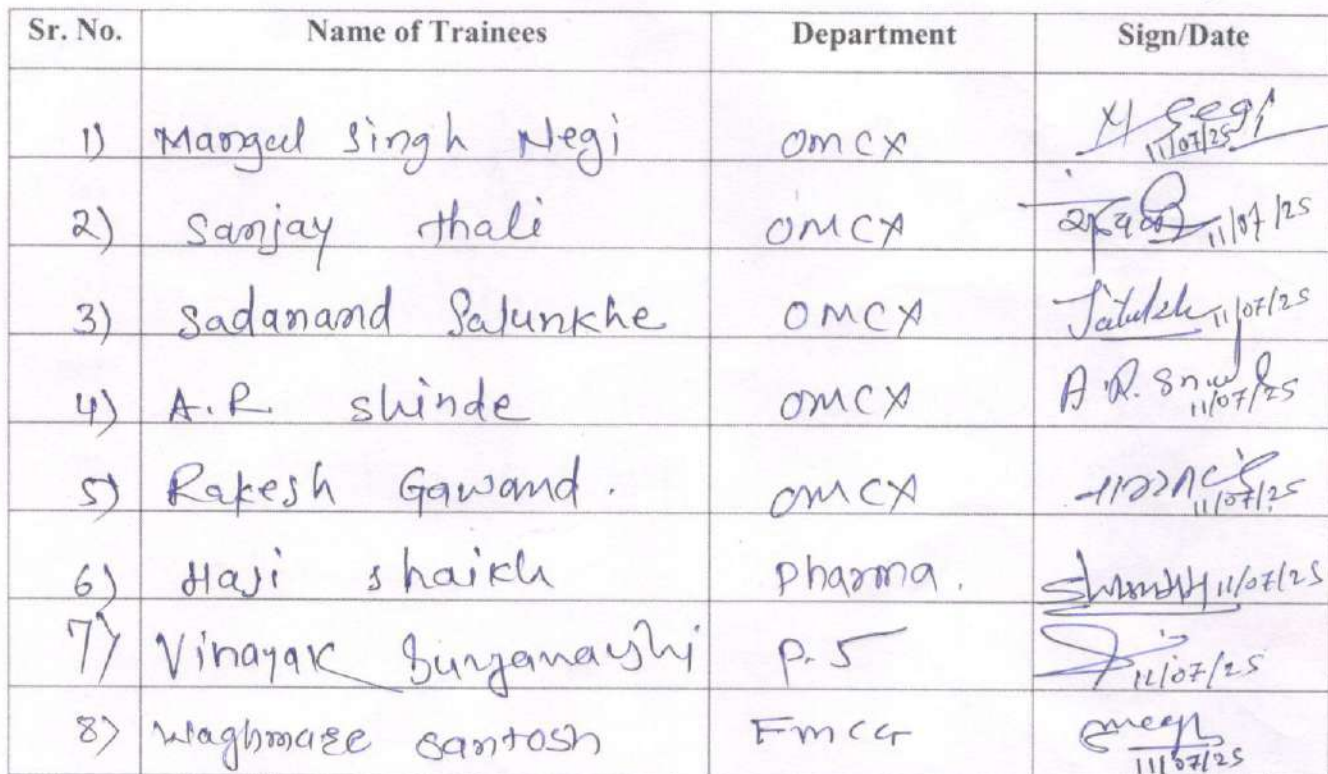 Sr. No. Name of Trainees Department Sign/Date
1) Mangal Singh Negi OMCX 11/07/25
2) Sanjay thali OMCX 11/07/25
3) Sadanand Salunkhe OMCX 11/07/25
4) A.R. Shinde OMCX A.R. 11/07/25
5) Rakesh Gawand. OMCX 11/07/25
6) Haji shaikh Pharma. 11/07/25
7) Vinayak P.5 11/07/25
8) Waghmare santosh FMCG 11/07/25